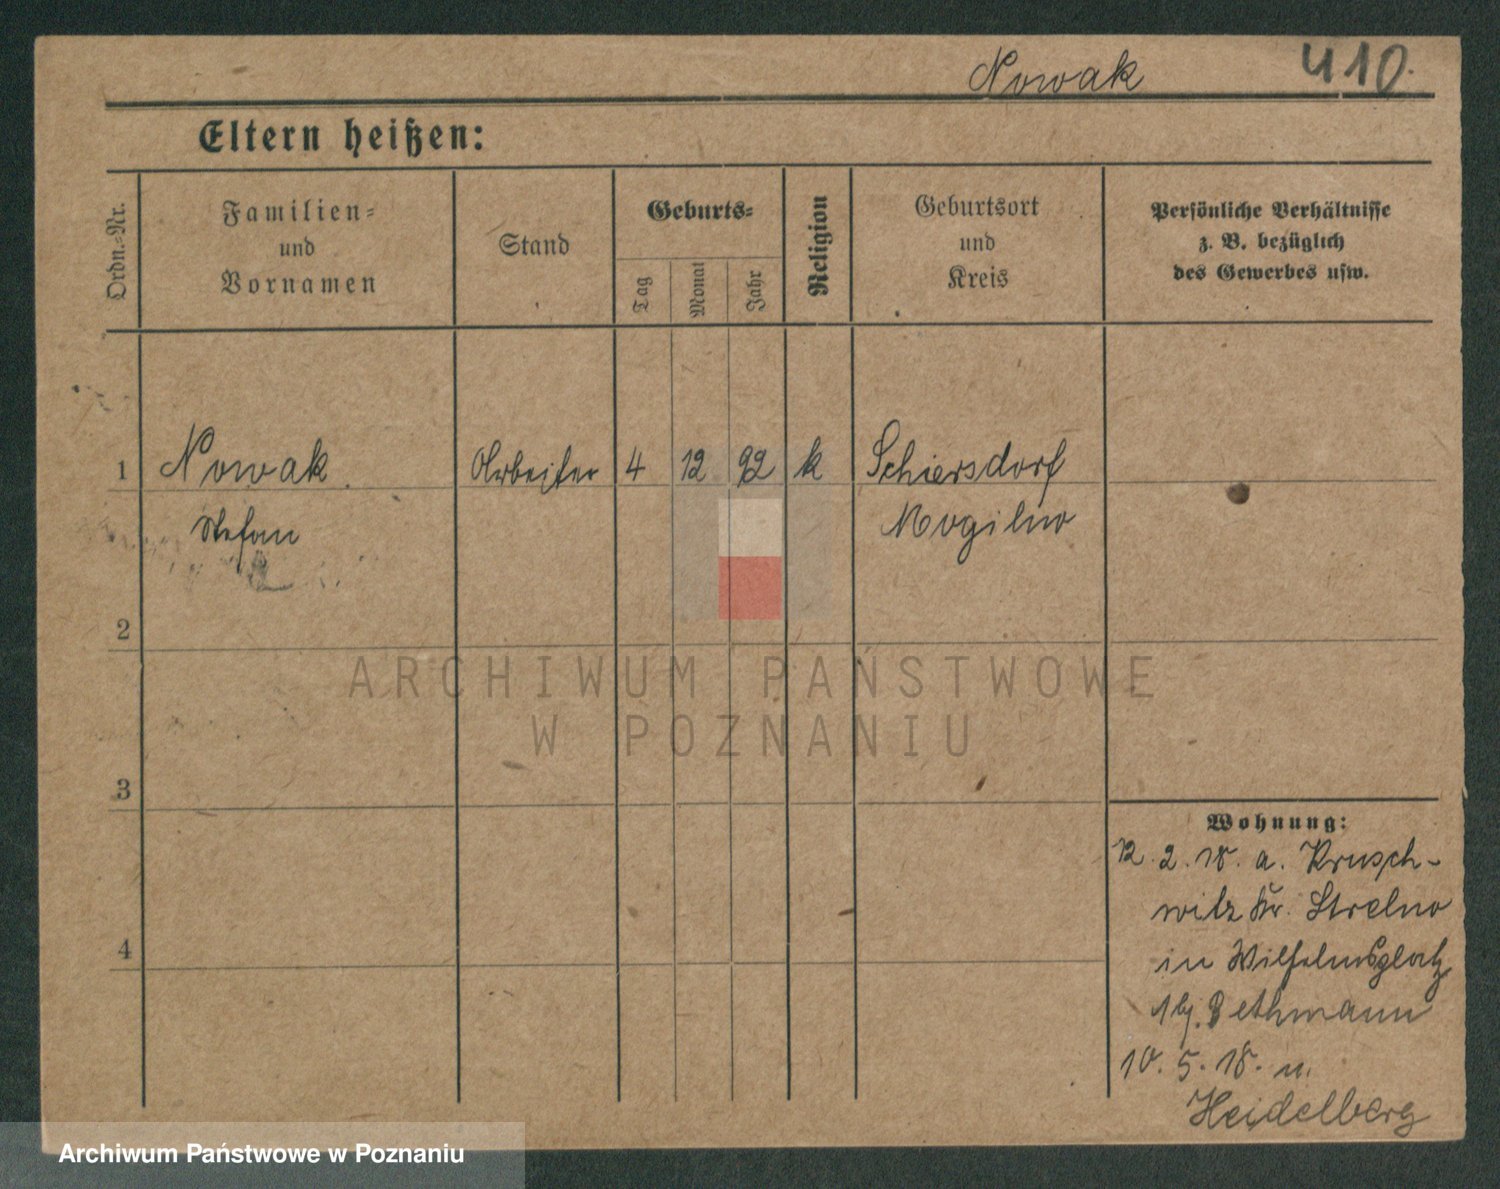 Nowak 410.
Eltern heißen:
Ordn.=Nr.
Familien=
und
Vornamen
Stand
Geburts=
Tag
Monat
Jahr
Religion
Geburtsort
und
Kreis
Persönliche Verhältnisse
z. B. bezüglich
des Gewerbes usw.
1 Nowak Arbeiter 4 12 92 k Schiersdorf
Stefan Mogilno
2
3
4
Wohnung:
12.2.18. a. Krusch-
witz Kr. Strelno
in Wilhelmsplatz
1 bj. Bethmann
10.5.18. n.
Heidelberg
ARCHIWUM PAŃSTWOWE
W POZNANIU
Archiwum Państwowe w Poznaniu